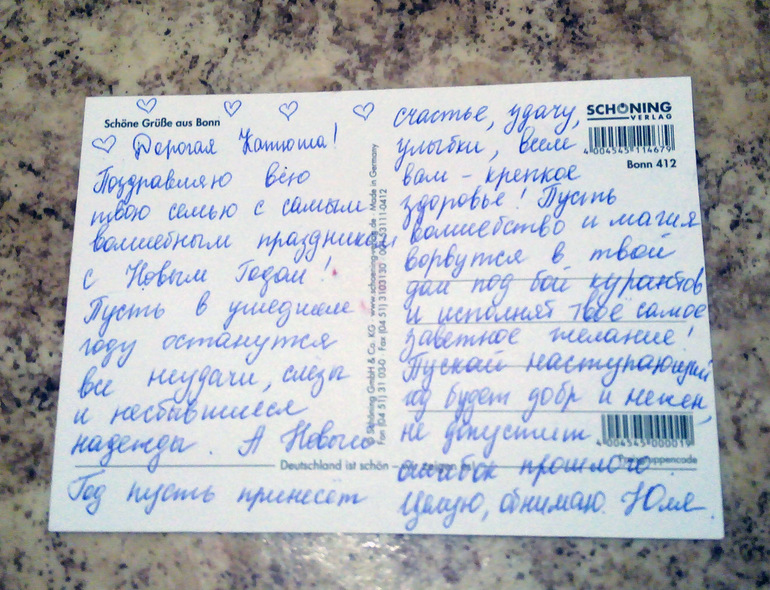 Schöne Grüße aus Bonn
Дорогая Катюша!
Поздравляю всю
твою семью с самым
волшебным праздником
с Новым Годом!
Пусть в ушедшем
году останутся
все неудачи, слёзы
и несбывшиеся
надежды. А Новый
Год пусть принесёт
Deutschland ist schön - wir zeigen es!
© Schöning GmbH & Co. KG www.schoening-verlag.de Made in Germany
Fax (04 51) 3103130
счастье, удачу,
улыбки, всем
вам - крепкое
здоровье! Пусть
волшебство и магия
ворвутся в твой
дом под бой курантов
и исполнят твоё самое
заветное желание!
Пускай наступающий
год будет добр и нежен,
не допустит
ошибок прошлого.
Целую, обнимаю. Юля.
SCHÖNING
VERLAG
4 004545 114679
Bonn 412
4 004545 000019
Preisgruppencode